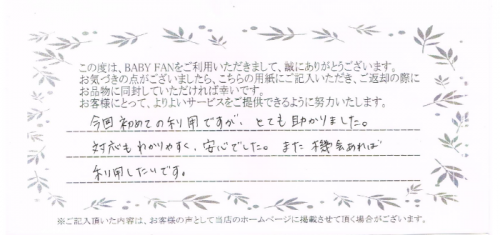 この度は、BABY FANをご利用いただきまして、誠にありがとうございます。
お気づきの点がございましたら、こちらの用紙にご記入いただき、ご返却の際に
お品物に同封していただければ幸いです。
お客様にとって、よりよいサービスをご提供できるように努力いたします。
今回初めての利用ですが、とても助かりました。
対応もわかりやすく、安心でした。また機会あれば
利用したいです。
※ご記入頂いた内容は、お客様の声として当店のホームページに掲載させて頂く場合がございます。